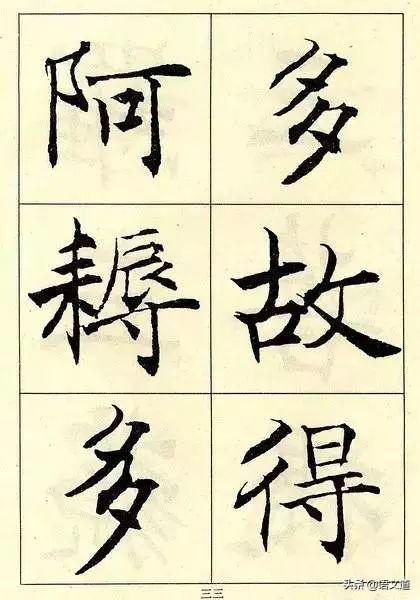 多故得
阿耨多
三三
头条@语文道